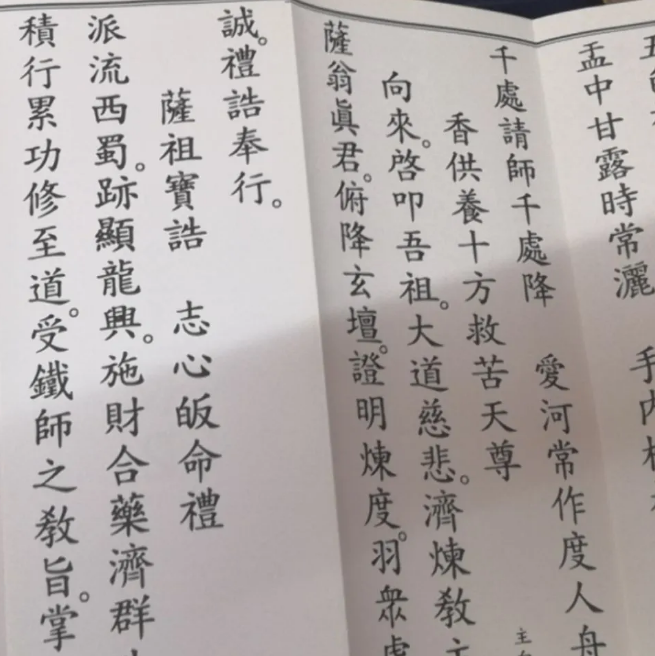 盂中甘露時常灑 手內
千處請師千處降 愛河常作度人舟
香供養十方救苦天尊
向來。啓叩吾祖。大道慈悲。濟煉教
薩翁眞君。俯降玄壇。證明煉度。羽眾虔
誠。禮誥奉行。
薩祖寶誥 志心皈命禮
派流西蜀。跡顯龍興。施財合藥濟群
積行累功修至道。受鐵師之教旨。掌